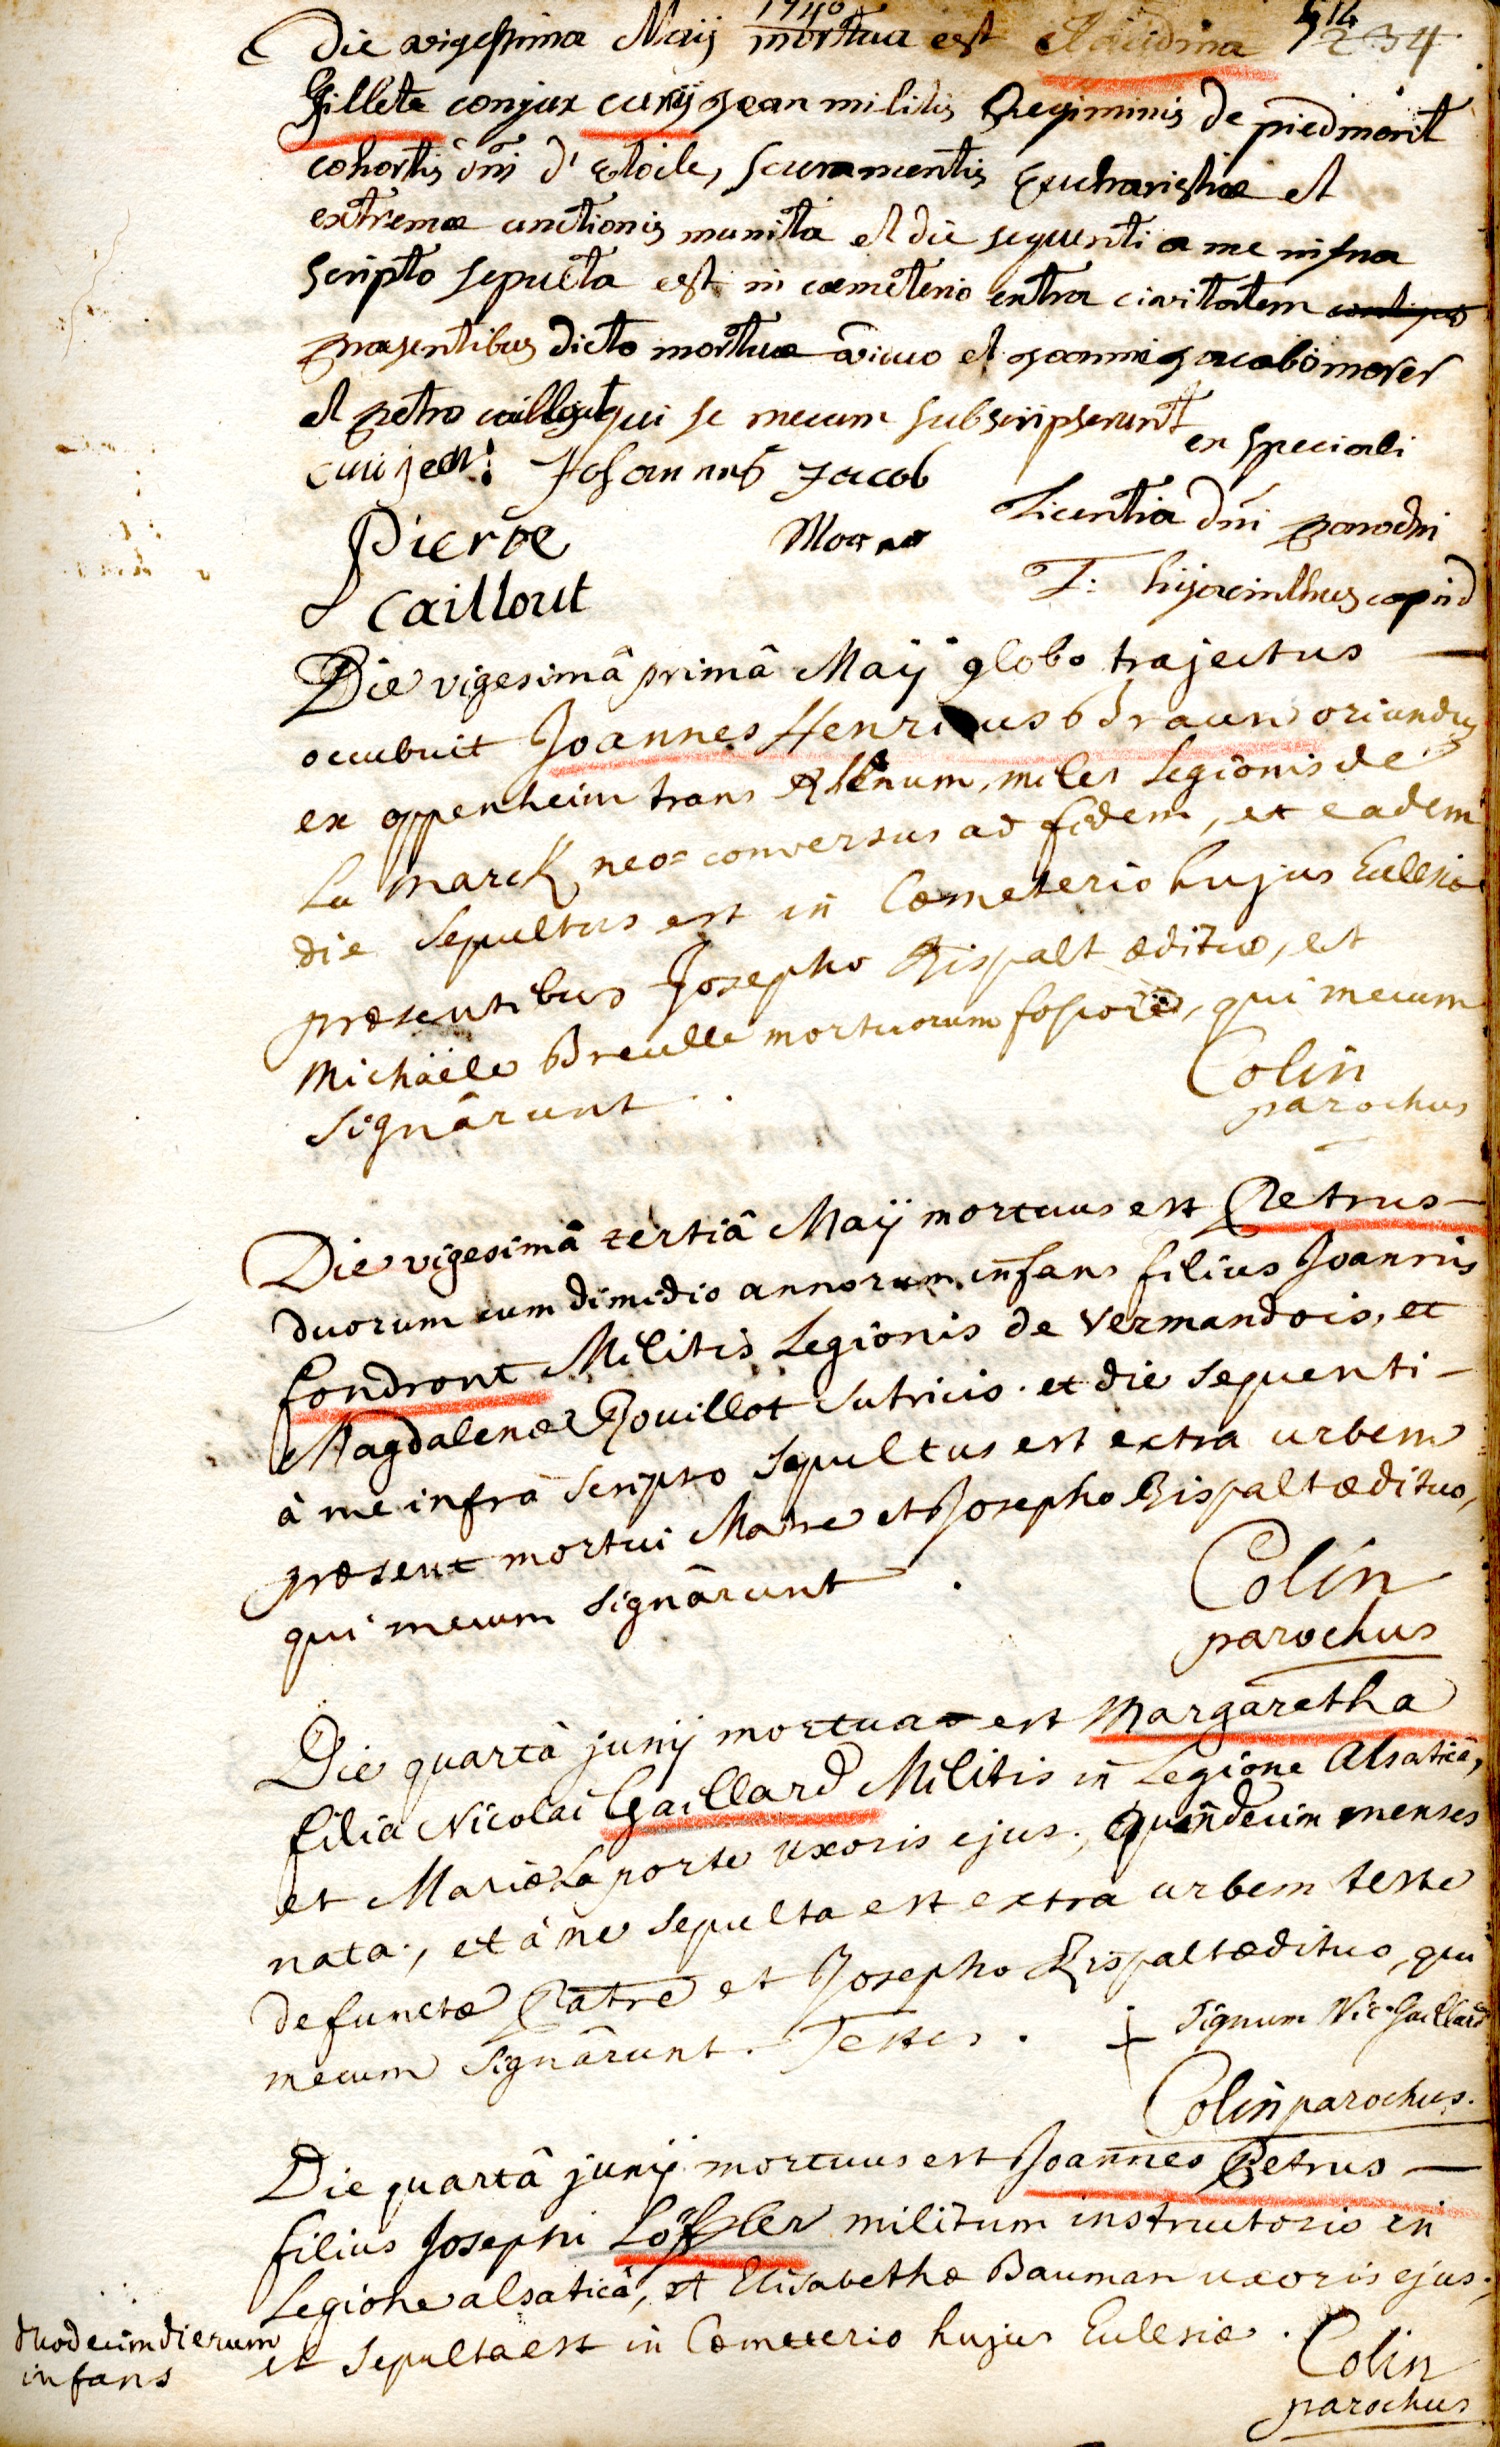 1740
514
234
Die vigessima Maij mortua est Claudina
Gillete conjux curij jean militis Regiminis de piedmont
cohortis dni d'etoile, sacramentis Eucharistiæ et
extremæ unctionis munita et die sequenti a me infra
scripto sepulta est in cæmeterio extra civitatem
præsentibus dicto mortuæ viduo et joanni jacobo morer
et petro caillout qui se mecum subscripserunt
ex speciali
Johannes Jacob
Licentia dni parochi
Pierre
F: hijacinthus capud
Caillout
Die vigesimâ primâ Maij globo trajectus
occubuit Joannes Henricus Braun oriundus
ex oppenheim trans Rhenum, miles Legionis de
La Marck neo=conversus ad fidem, et eadem
die sepultus est in Cœmeterio hujus Ecclesiæ
præsentibus Josepho Rispalt ædituo, et
Michäele Breulle mortuorum fossore, qui mecum
signârunt.
Colin
parochus
Die vigesimâ tertiâ Maij mortuus est Petrus
duorum cum dimidio annorum infans filius Joannis
fondront Militis Legionis de Vermandois, et
Magdalenæ Rouillot sutricis. et die sequenti
à me infrà scripto sepultus est extra urbem
præsent mortui Matre et Josepho Rispalt ædituo,
qui mecum signârunt.
Colin
parochus
Die quartâ junij mortua est Margaretha
filia Nicolai Gaillard Militis in Legione Alsaticâ,
et Mariæ Laporte uxoris ejus., quindecim menses
nata., et à me sepulta est extra urbem teste
defunctæ Patre et Josepho Rispalt ædituo, qui
mecum signârunt. Testes.
Signum Nic. Gaillard
Colin parochus.
Die quartâ junij mortuus est Joannes Petrus
filius Josephi Löffler militum instructoris in
Legione alsaticâ, et Elisabethæ Bauman uxoris ejus.,
duodecim dierum
infans
et sepulta est in Cœmeterio hujus Ecclesiæ.
Colin
parochus